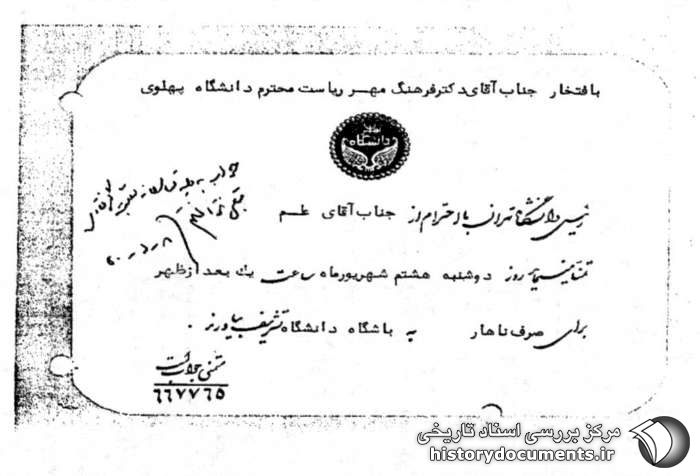 بافتخار جناب آقای دکتر فرهنگ مهر ریاست محترم دانشگاه پهلوی
دانشگاه
رئیس دانشگاه تهران با احترام از جناب آقای علم
تقاضا مینماید روز دوشنبه هشتم شهریورماه ساعت یك بعد از ظهر
برای صرف ناهار به باشگاه دانشگاه تشریف بیاورند .
متمنی جواب است
۶۶۷۷۶۵
مرکز بررسی اسناد تاریخی
historydocuments.ir